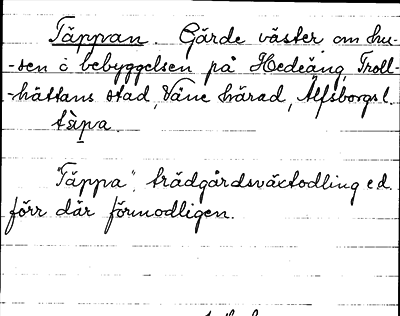 Täppan. Gärde väster om hu-
-sen å bebyggelsen på Hedeäng, Troll-
-hättans stad, Väne härad, Älfsborgs l.
tàpa.
"Täppa", trädgårdsväxtodling e.d.
förr där förmodligen.